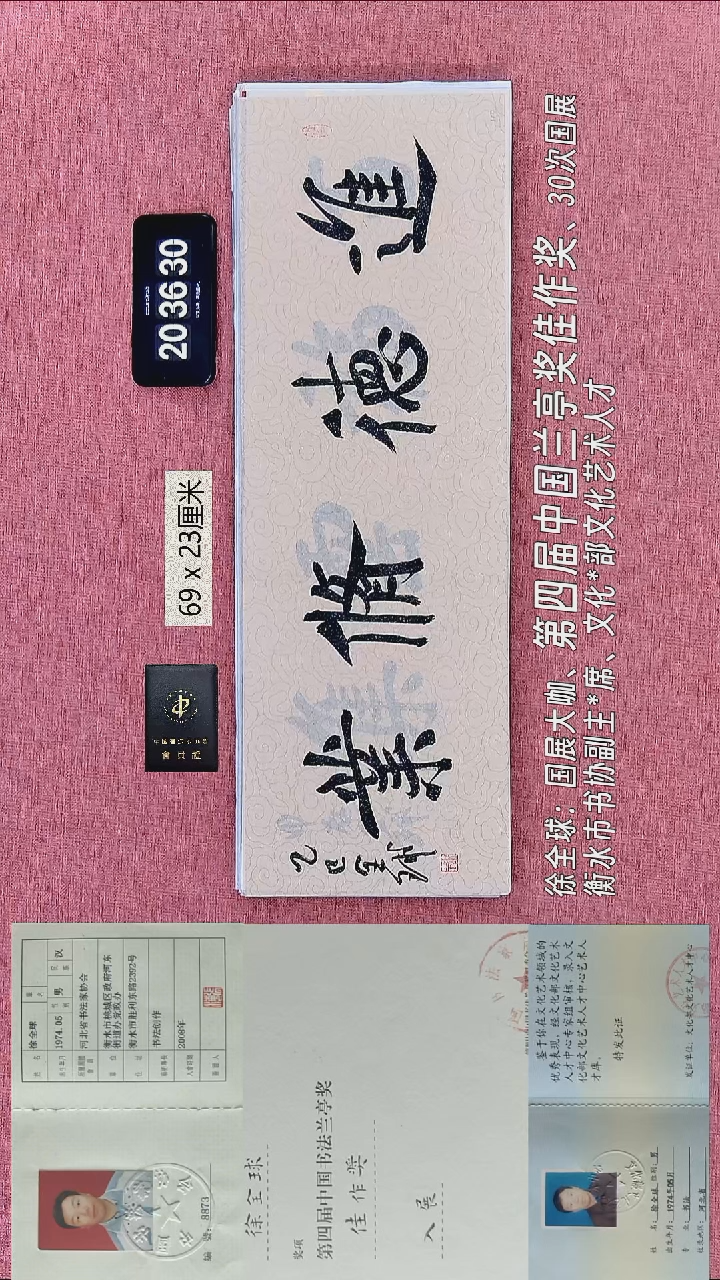 20 36 30
69 x 23厘米
進德脩業
乙巳全球
徐全球：国展大咖、第四届中国兰亭奖佳作奖、30次国展
衡水市书协副主*席、文化*部文化艺术人才
姓名 徐全球
1974.06 男 汉
河北省书法家协会
衡水市桃城区政府河东
街道办党政办
衡水市胜利东路2292号
书法创作
2008年
编号: 8873
徐全球
奖项
第四届中国书法兰亭奖
佳作奖
入展
鉴于你在文化艺术领域的
优秀表现，经文化部文化艺术
人才中心专家组审核，录入文
化部文化艺术人才中心艺术人
才库。
特发此证
发证单位: 文化部文化艺术人才中心
姓名: 徐全球 性别: 男
出生年月: 1974年06月
专业: 书法